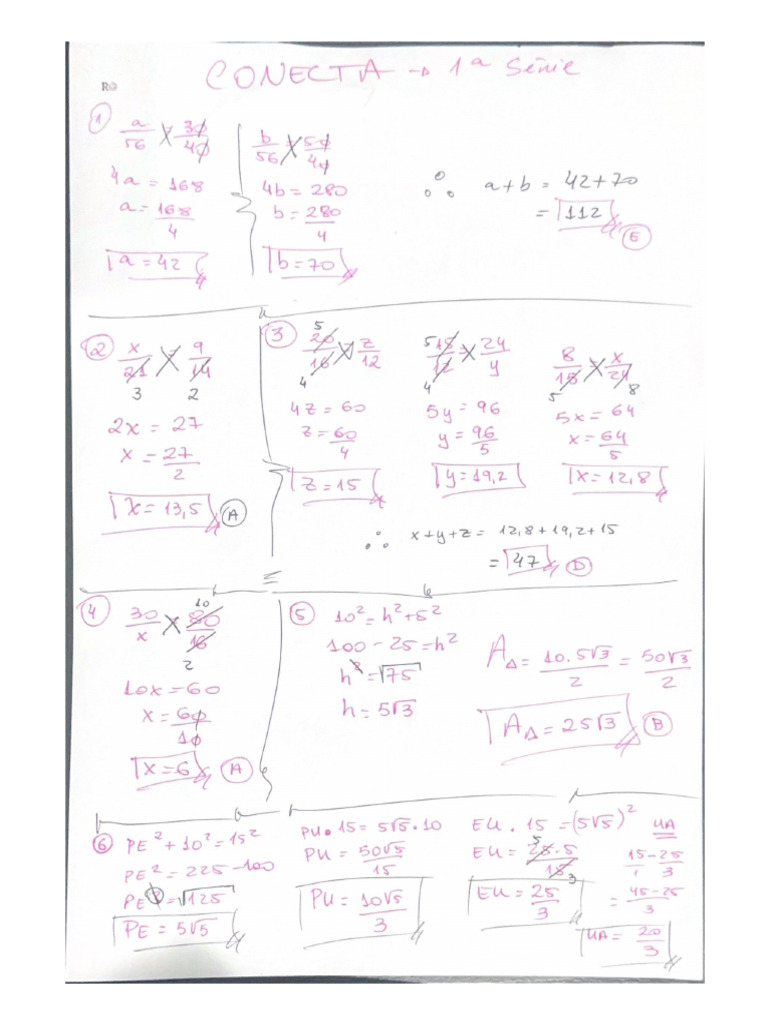 CONECTA → 1ª Série
RO
1
a/56 = 30/40
4a = 168
a = 168/4
a = 42
b/56 = 50/40
4b = 280
b = 280/4
b = 70
∴ a+b = 42+70
= 112
E
2
x/21 = 9/14
3 2
2x = 27
x = 27/2
x = 13,5
A
3
20/16 = z/12
5
4
4z = 60
z = 60/4
z = 15
15/12 = 24/y
5
4
5y = 96
y = 96/5
y = 19,2
8/15 = x/24
5 8
5x = 64
x = 64/5
x = 12,8
∴ x+y+z = 12,8+19,2+15
= 47
D
4
30/x = 80/16
10
2
10x = 60
x = 60/10
x = 6
A
5
10² = h²+5²
100 - 25 = h²
h² = √75
h = 5√3
A△ = 10.5√3/2 = 50√3/2
A△ = 25√3
B
6
PE²+10² = 15²
PE² = 225-100
PE² = √125
PE = 5√5
PU.15 = 5√5.10
PU = 50√5/15
PU = 10√5/3
EU.15 = (5√5)²
EU = 25.5/15
5
3
EU = 25/3
UA
15/1 - 25/3
= 45-25/3
UA = 20/3